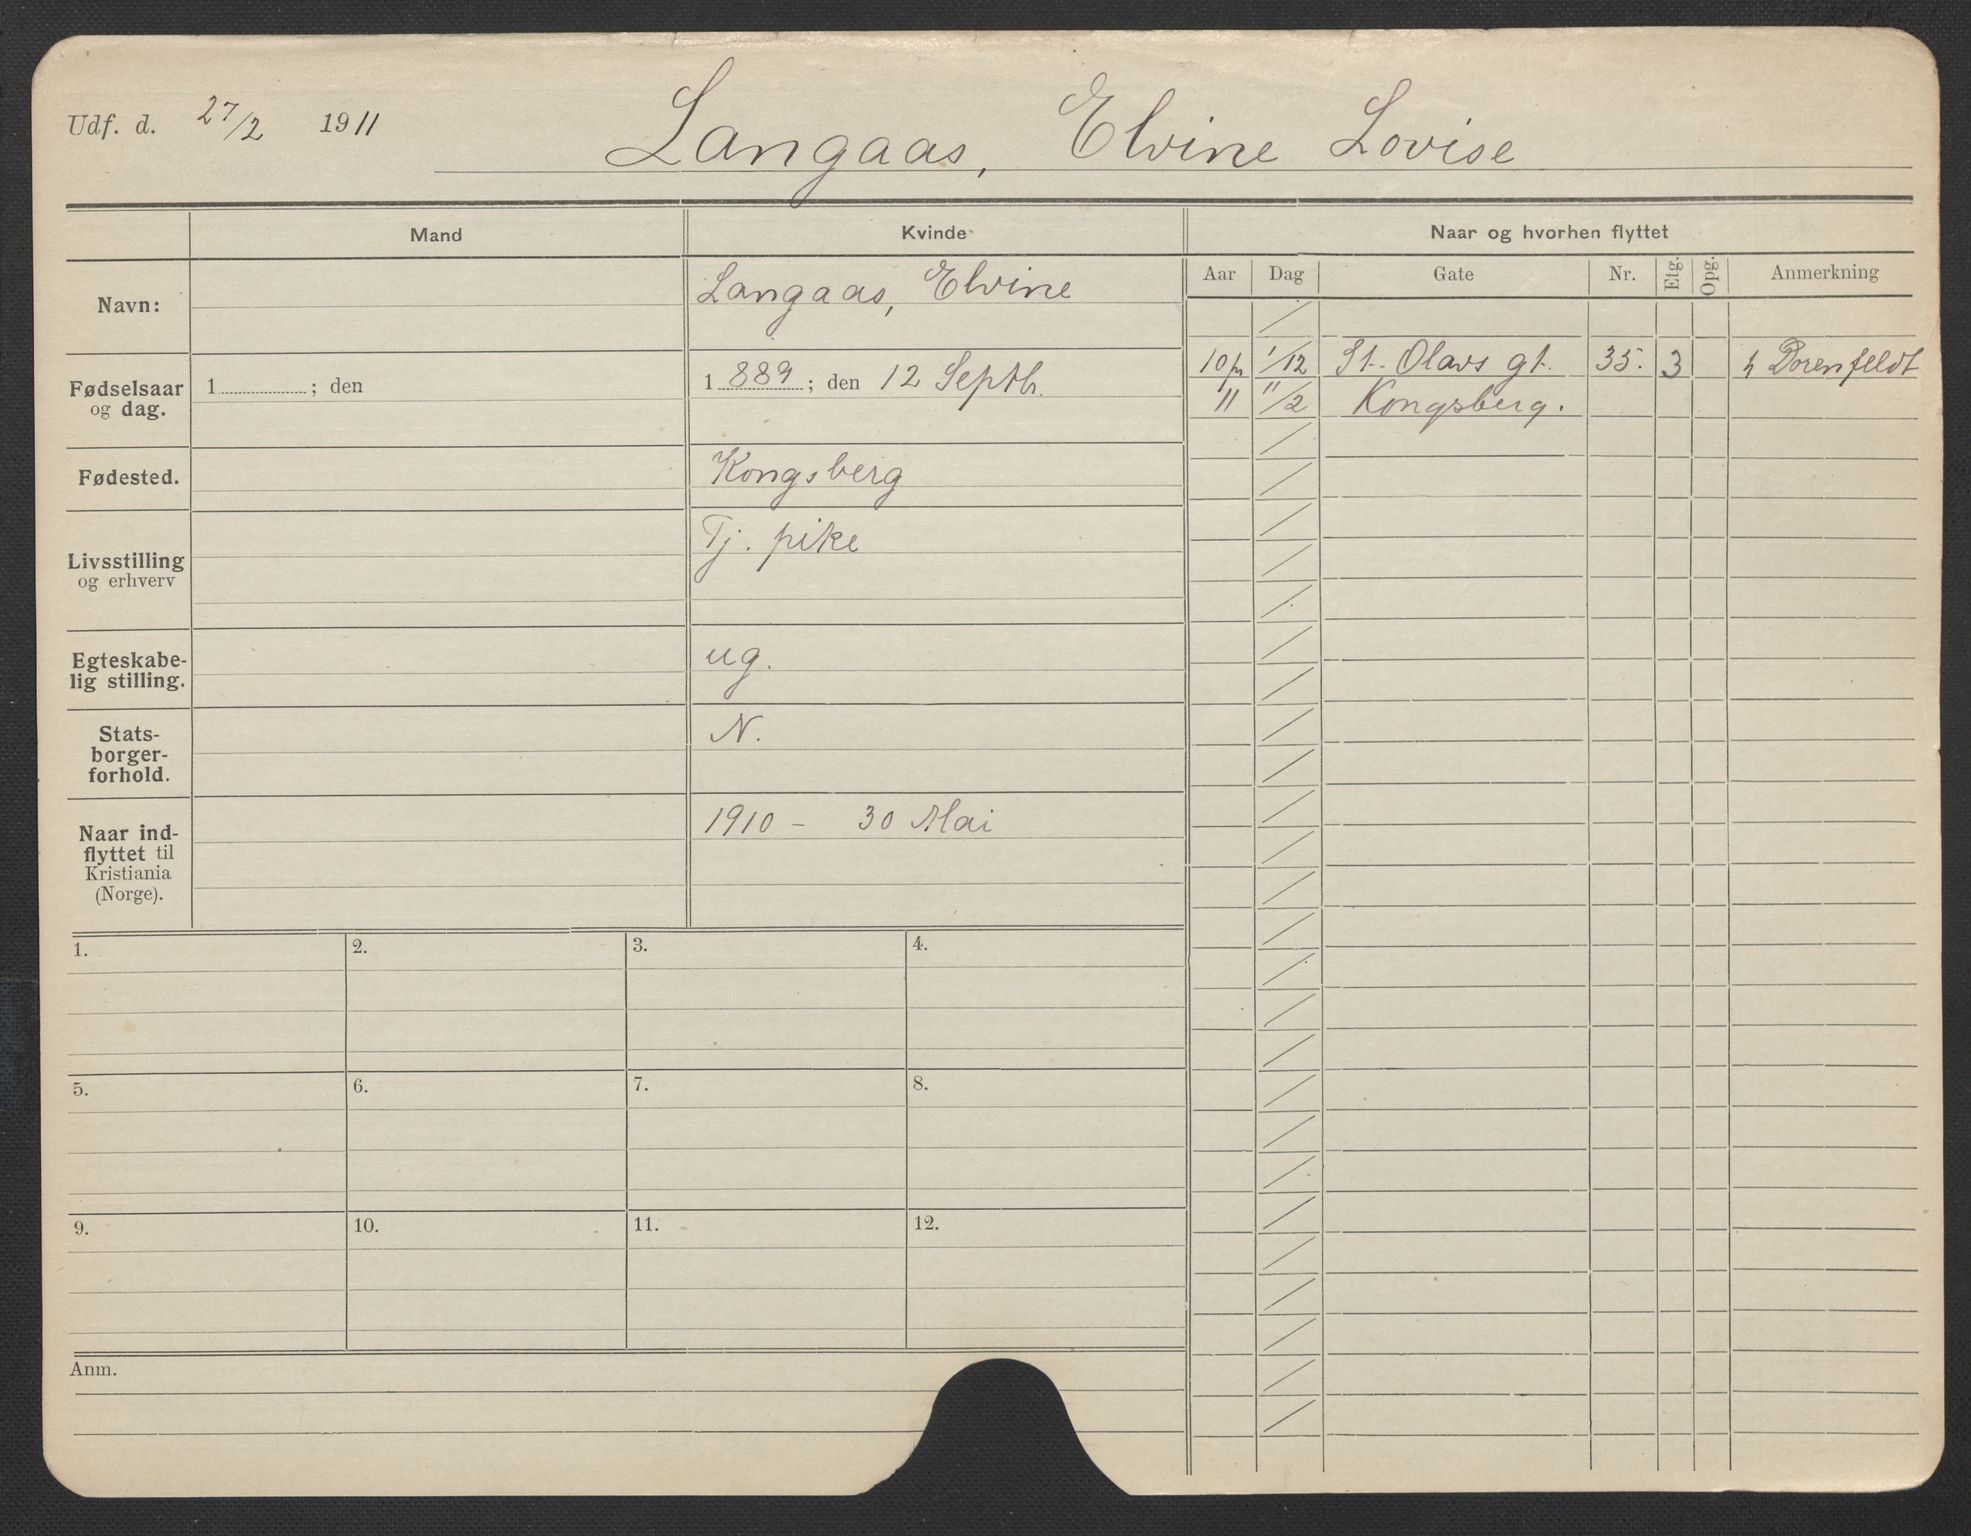 Udf. d. 27/2 1911
Langaas, Elvine Lovise
Mand
Kvinde
Naar og hvorhen flyttet
Aar Dag Gate Nr. Etg. Opg. Anmerkning
Navn:
Langaas, Elvine
Fødselsaar
og dag.
1 ; den
1889; den 12 Septbr.
Fødested.
Kongsberg
Livsstilling
og erhverv
Tj. pike
Egteskabe-
lig stilling.
ug.
Stats-
borger-
forhold.
N.
Naar ind-
flyttet til
Kristiania
(Norge).
1910 - 30 Mai
10 1/12 St. Olavs gt. 35. 3 Dorenfeldt
11 "/2 Kongsberg.
1. 2. 3. 4.
5. 6. 7. 8.
9. 10. 11. 12.
Anm.